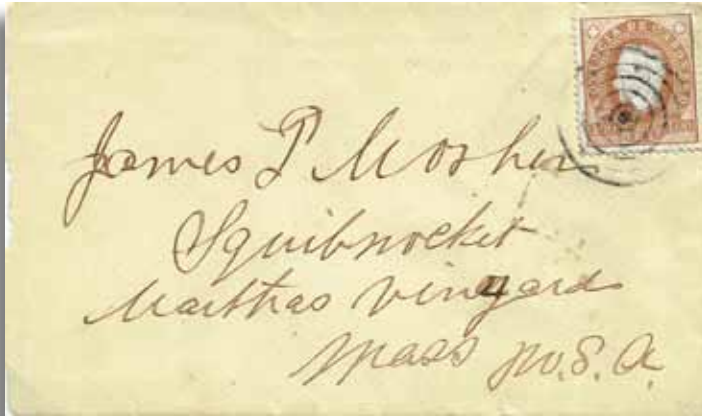 James P Mosher
Squibnocket
Marthas Vinyard
Mass U.S.A.